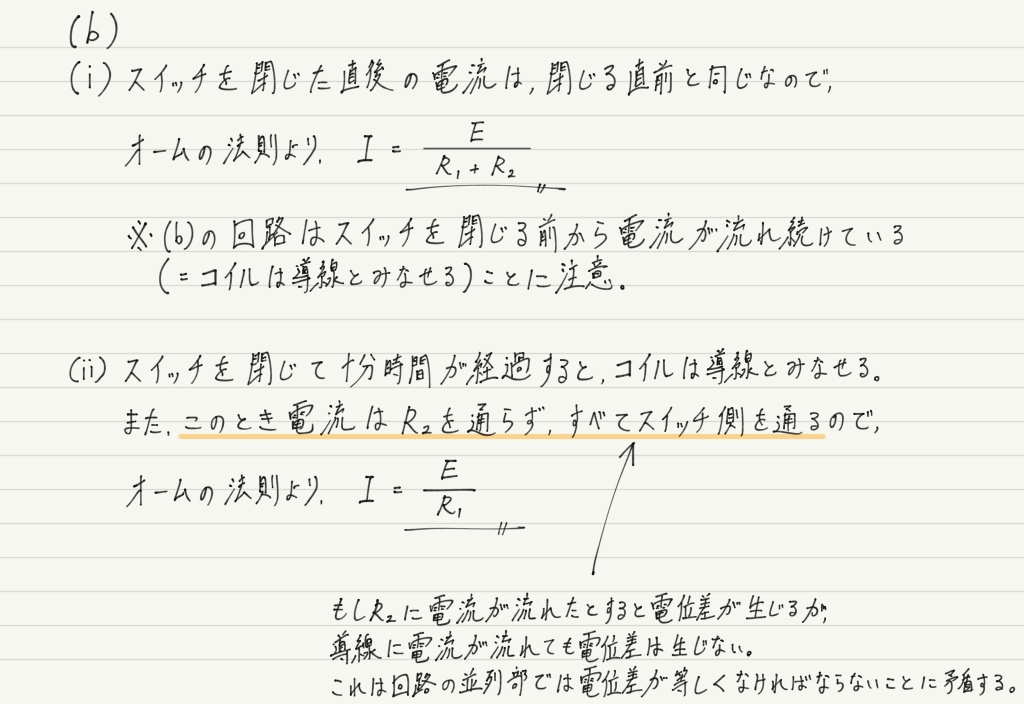 (b)
(i) スイッチを閉じた直後の電流は, 閉じる直前と同じなので,
オームの法則より, I = E / (R₁ + R₂)
※(b)の回路はスイッチを閉じる前から電流が流れ続けている
(=コイルは導線とみなせる)ことに注意。
(ii) スイッチを閉じて十分時間が経過すると, コイルは導線とみなせる。
また, このとき電流はR₂を通らず, すべてスイッチ側を通るので,
オームの法則より, I = E / R₁
もしR₂に電流が流れたとすると電位差が生じるが,
導線に電流が流れても電位差は生じない。
これは回路の並列部では電位差が等しくなければならないことに矛盾する。